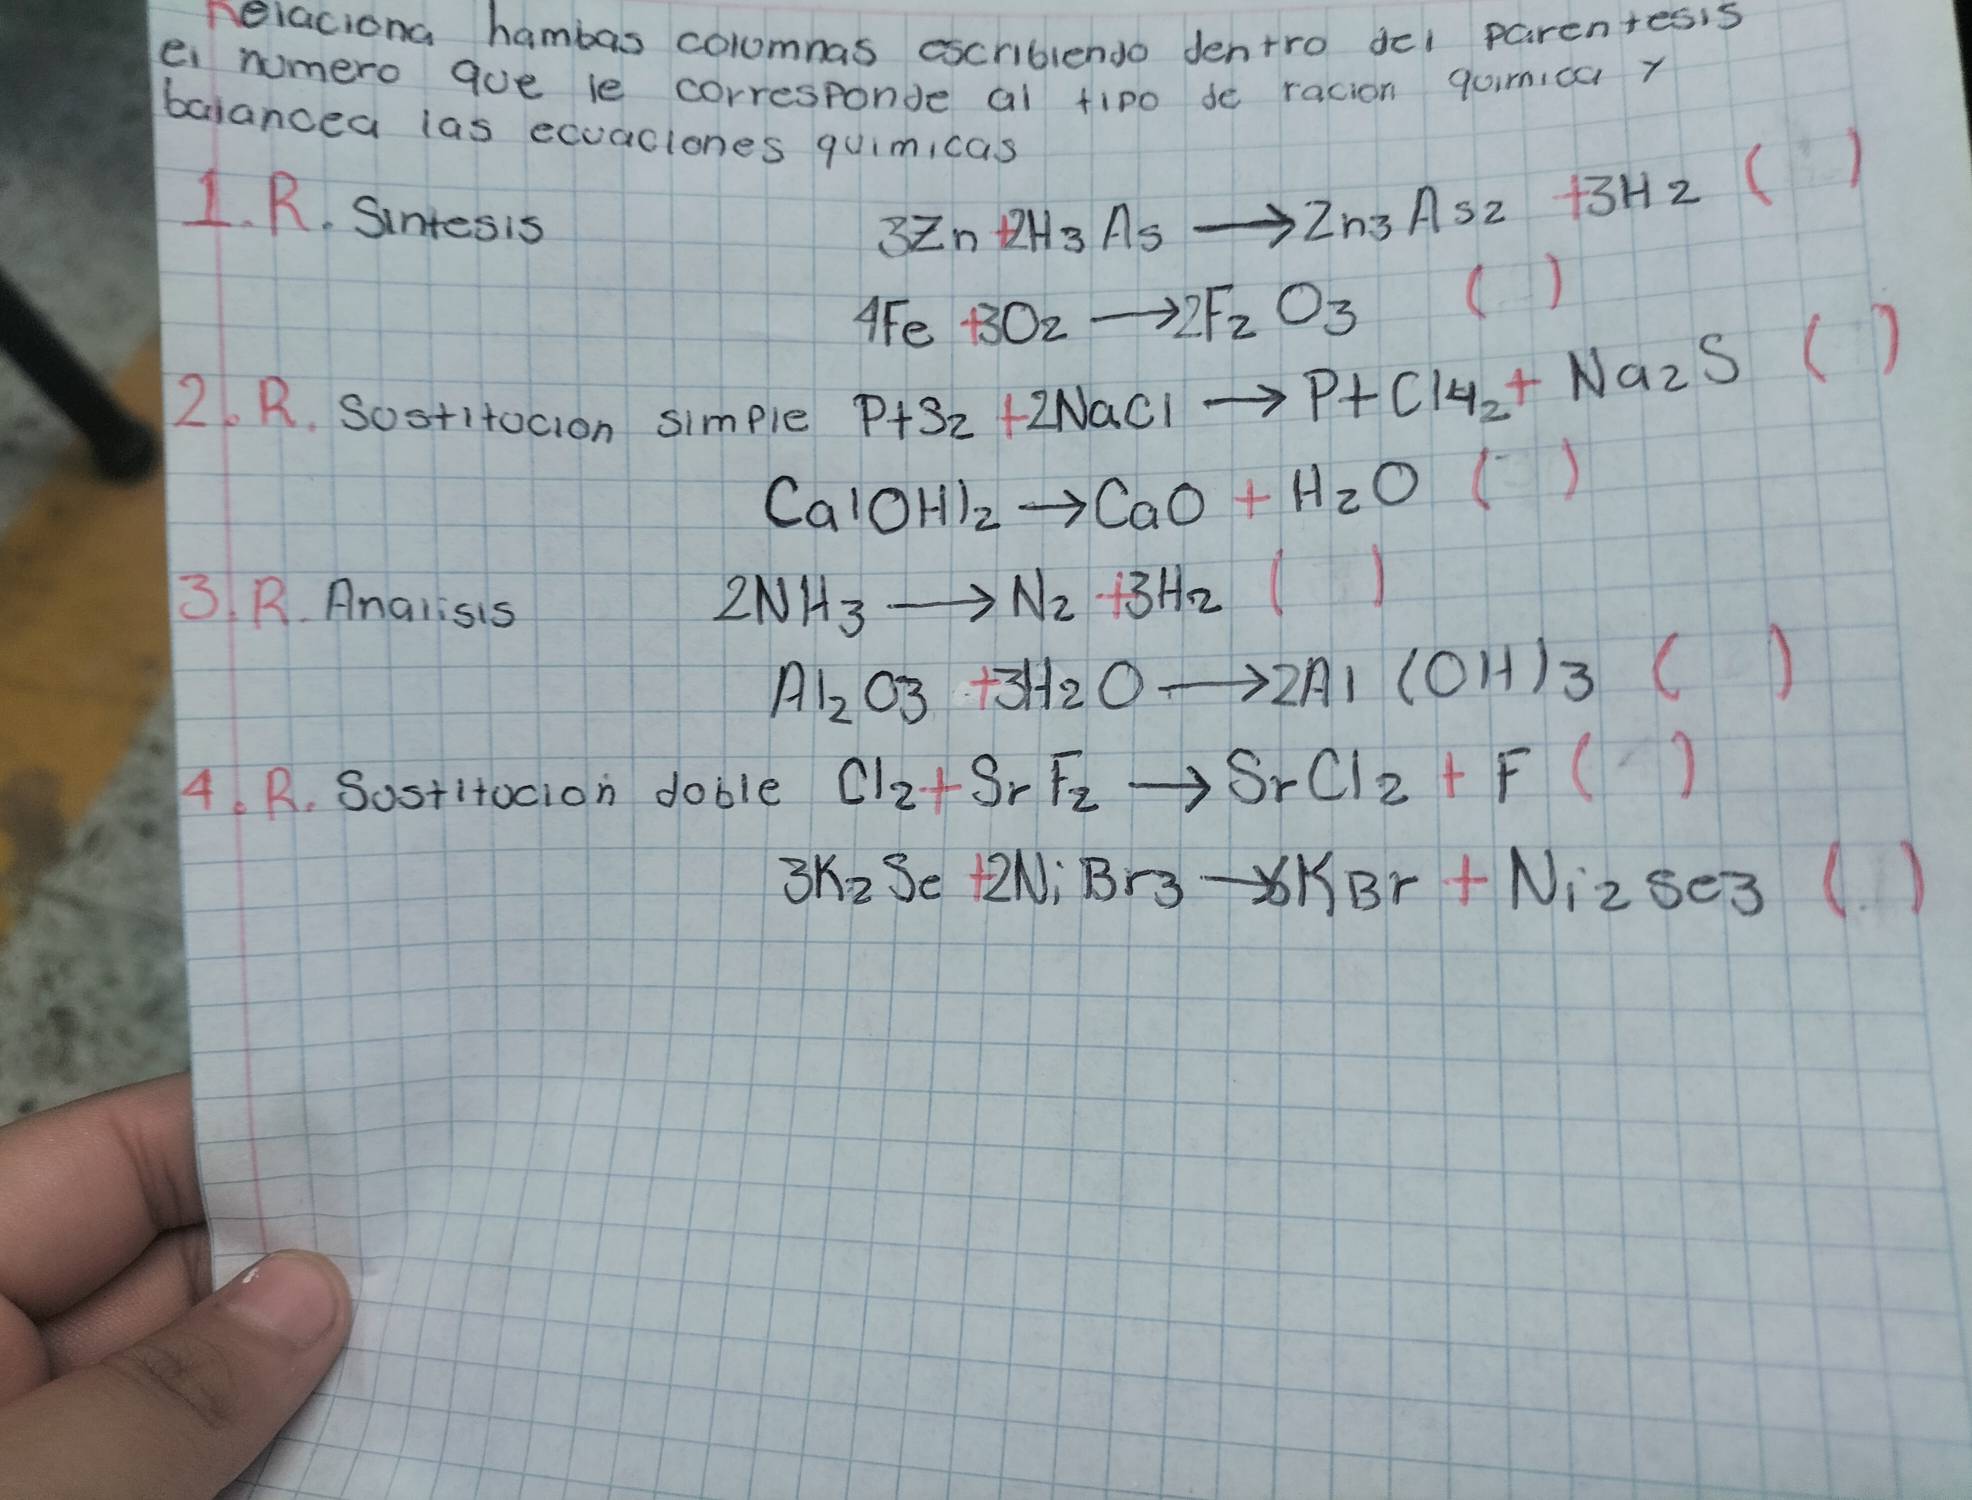 Relaciona hambas columnas escribiendo dentro del parentesis
el numero que le corresponde al tipo de racion quimica y
balancea las ecuaciones quimicas
1. R. Sintesis 3Zn + 2H3 As → Zn3 As2 + 3H2 ( )
4Fe + 3O2 → 2F2 O3 ( )
2. R. Sostitucion simple PtS2 + 2NaCl → PtCl4 2 + Na2S ( )
Ca(OH)2 → CaO + H2O ( )
3. R. Analisis 2NH3 → N2 + 3H2 ( )
Al2O3 + 3H2O → 2Al (OH)3 ( )
4. R. Sostitucion doble Cl2 + SrF2 → SrCl2 + F ( )
3K2Se + 2NiBr3 → 6KBr + Ni2Se3 ( )